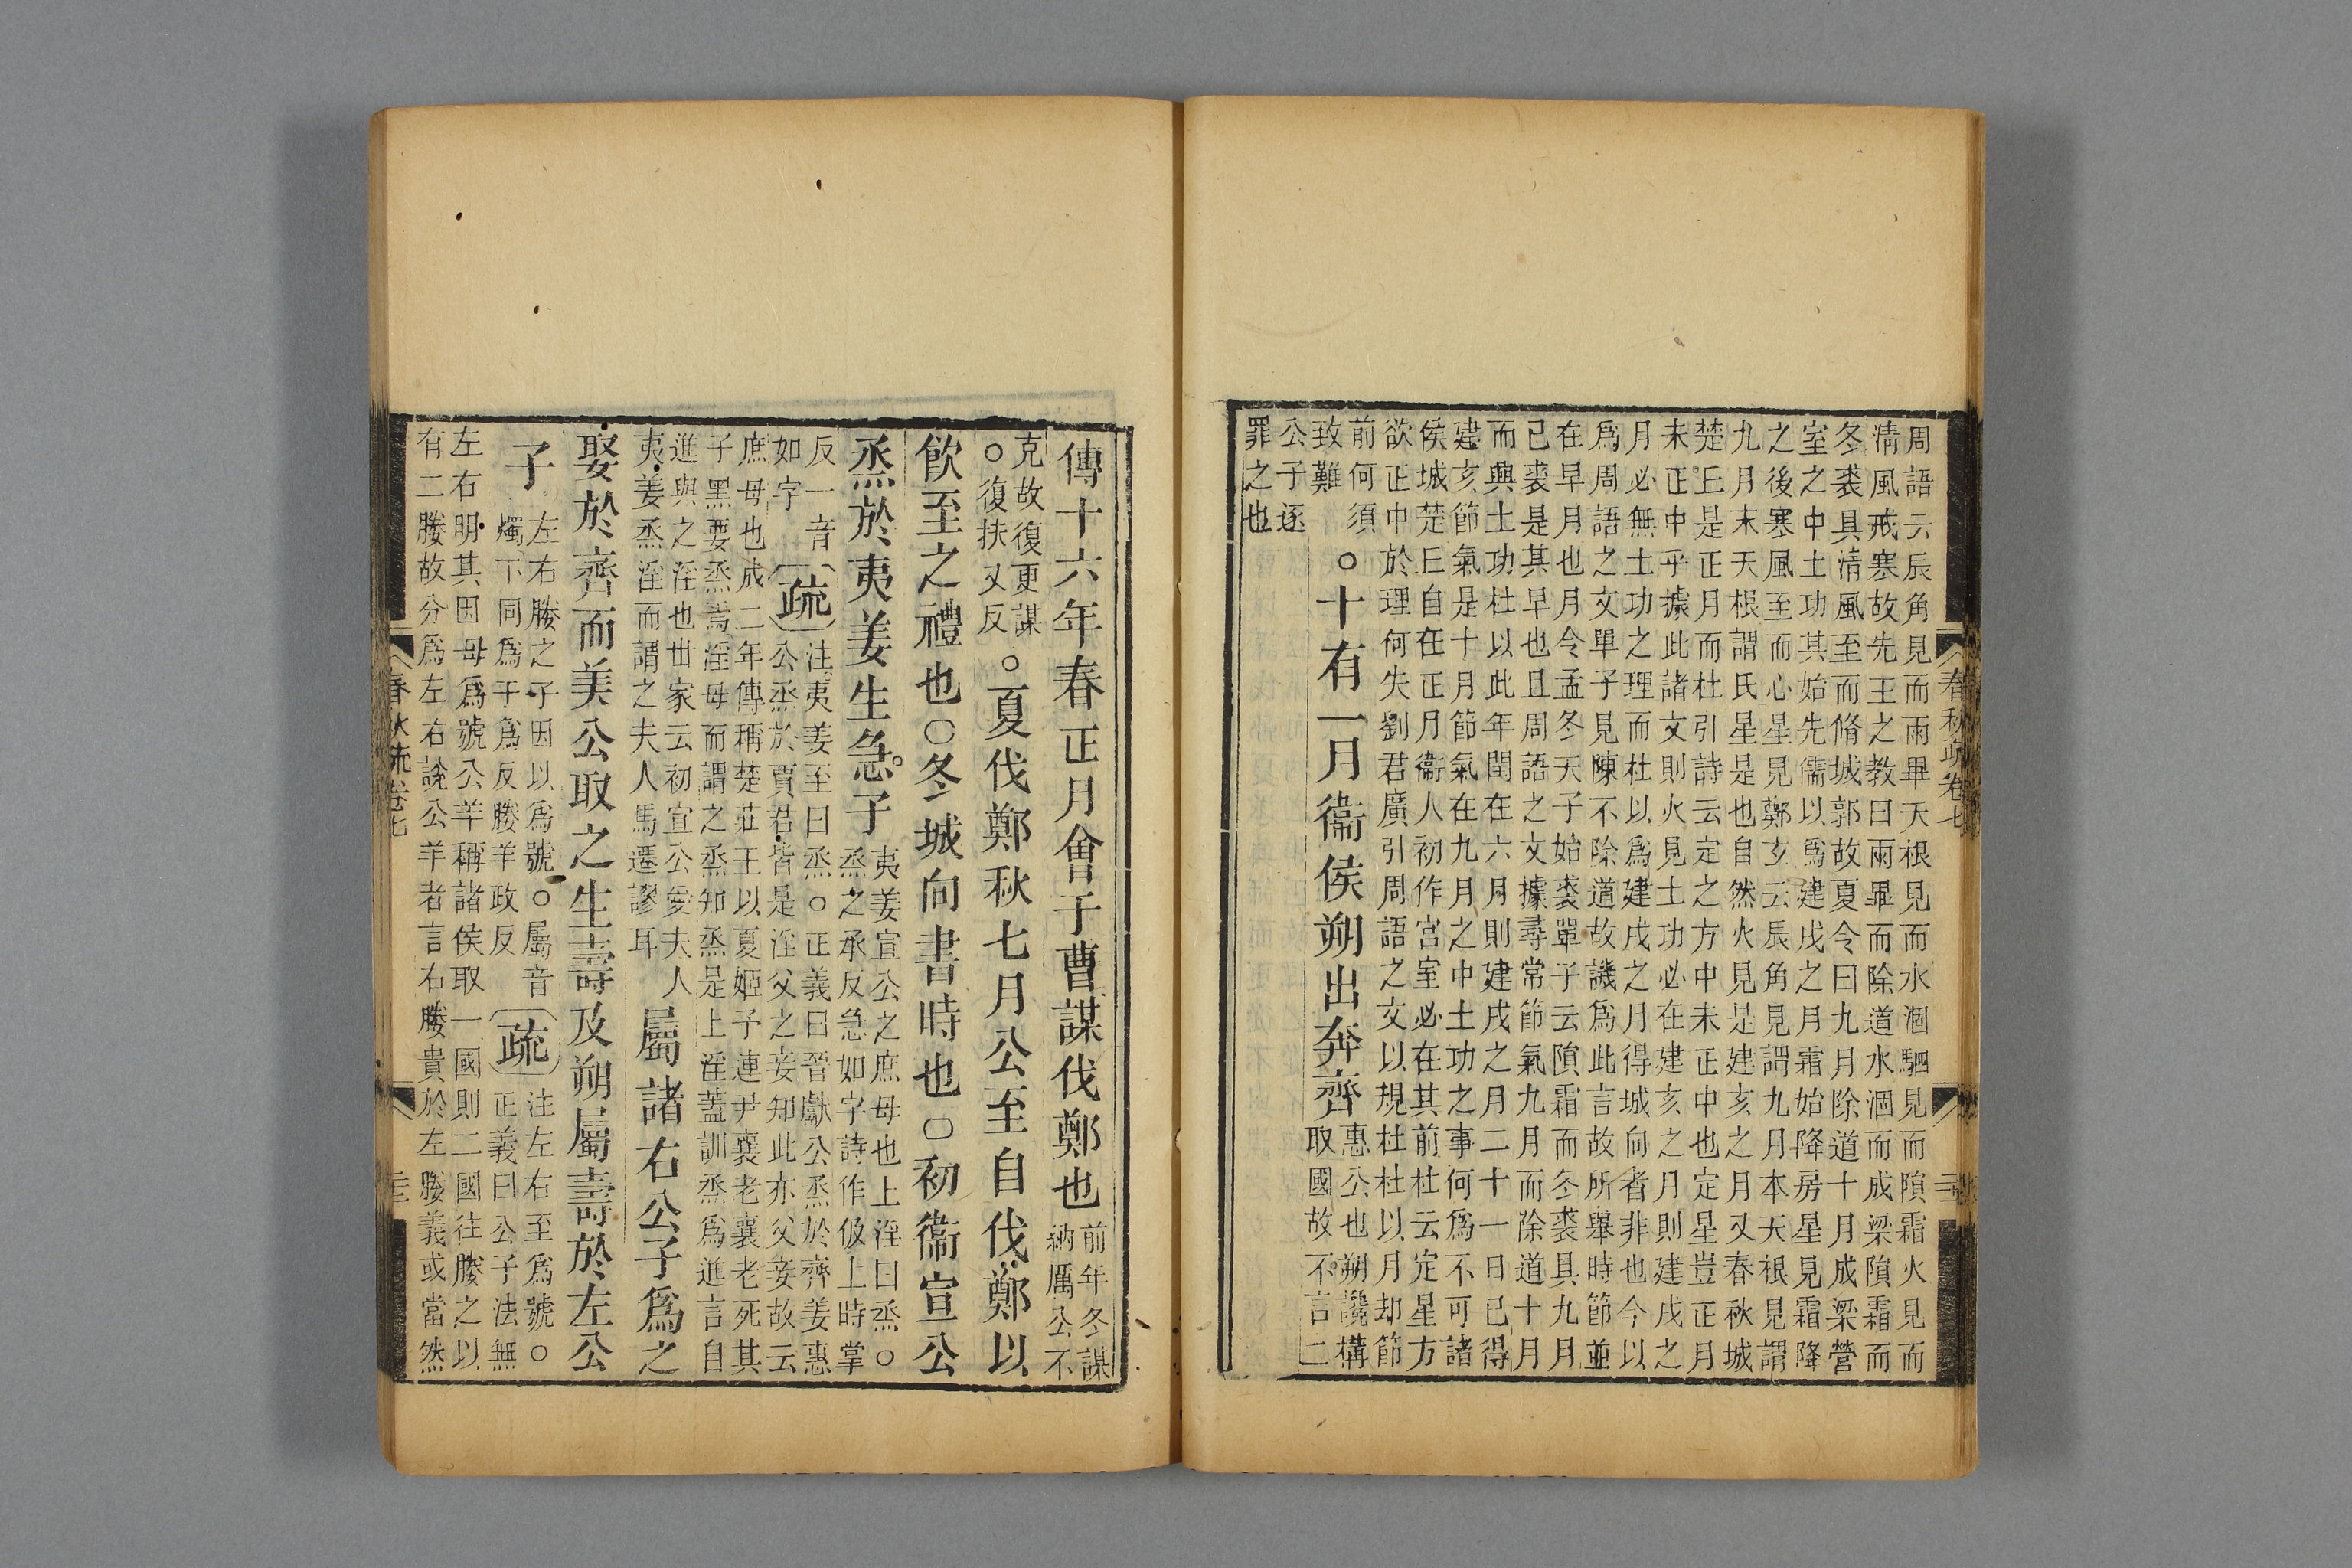 周語云辰角見而雨畢天根見而水涸駟見而隕霜火見而
清風戒寒故先王之教曰雨畢而除道水涸而成梁隕霜而
冬裘具清風至而脩城郭故夏令曰九月除道十月成梁營
室之中土功其始先儒以爲建戌之月霜始降房星見霜降
之後寒風至而心星見鄭玄云辰角見謂九月本天根見謂
九月末天根謂氐星是也自然火見是建亥之月又春秋城
楚丘是正月而杜引詩云定之方中未正中也定星豈正月
未正中乎據此諸文則火見土功必在建亥之月則建戌之
月必無土功之理而杜以爲建戌之月得城向者非也今以
爲周語之文單子見陳不除道故譏爲此言故所舉時節並
在早月也月令孟冬天子始裘單子云隕霜而冬裘具九月
已裘是其早也且周語之文據尋常節氣九月而除道十月
而興土功杜以此年閏在六月則建戌之月二十一日已得
建亥節氣是十月節氣在九月之中土功之事何爲不可諸
侯城楚丘自在正月衞人初作宮室必在其前杜云定星方
欲正中於理何失劉君廣引周語之文以規杜杜以月却節
前何須
致難
○十有一月衞侯朔出奔齊
惠公也朔讒構
取國故不言二
公子逐
罪之也
春秋疏卷七
傳十六年春正月會于曹謀伐鄭也
前年冬謀
納厲公不
克故復更謀
○復扶又反
○夏伐鄭秋七月公至自伐鄭以
飲至之禮也○冬城向書時也○初衞宣公
烝於夷姜生急子
夷姜宣公之庶母也上淫曰烝○
烝之承反急如字詩作伋上時掌
反一音
如字
疏
注夷姜至曰烝○正義曰晉獻公烝於齊姜惠
公烝於賈君皆是淫父之妾知此亦父妾故云
庶母也成二年傳稱楚莊王以夏姬予連尹襄老襄老死其
子黑要烝焉淫母而謂之烝知烝是上淫蓋訓烝爲進言自
進與之淫也世家云初宣公愛夫人
夷姜烝淫而謂之夫人馬遷謬耳
屬諸右公子爲之
娶於齊而美公取之生壽及朔屬壽於左公
子
左右媵之子因以爲號○屬音
燭下同爲于爲反媵羊政反
疏
注左右至爲號○
正義曰公子法無
左右明其因母爲號公羊稱諸侯取一國則二國往媵之以
有二媵故分爲左右說公羊者言右媵貴於左媵義或當然
春秋疏卷七